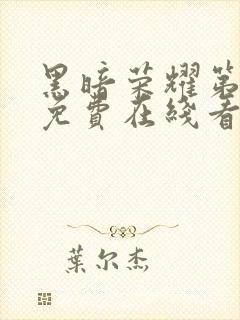 黑暗荣耀第
免费在线看
葉尔杰